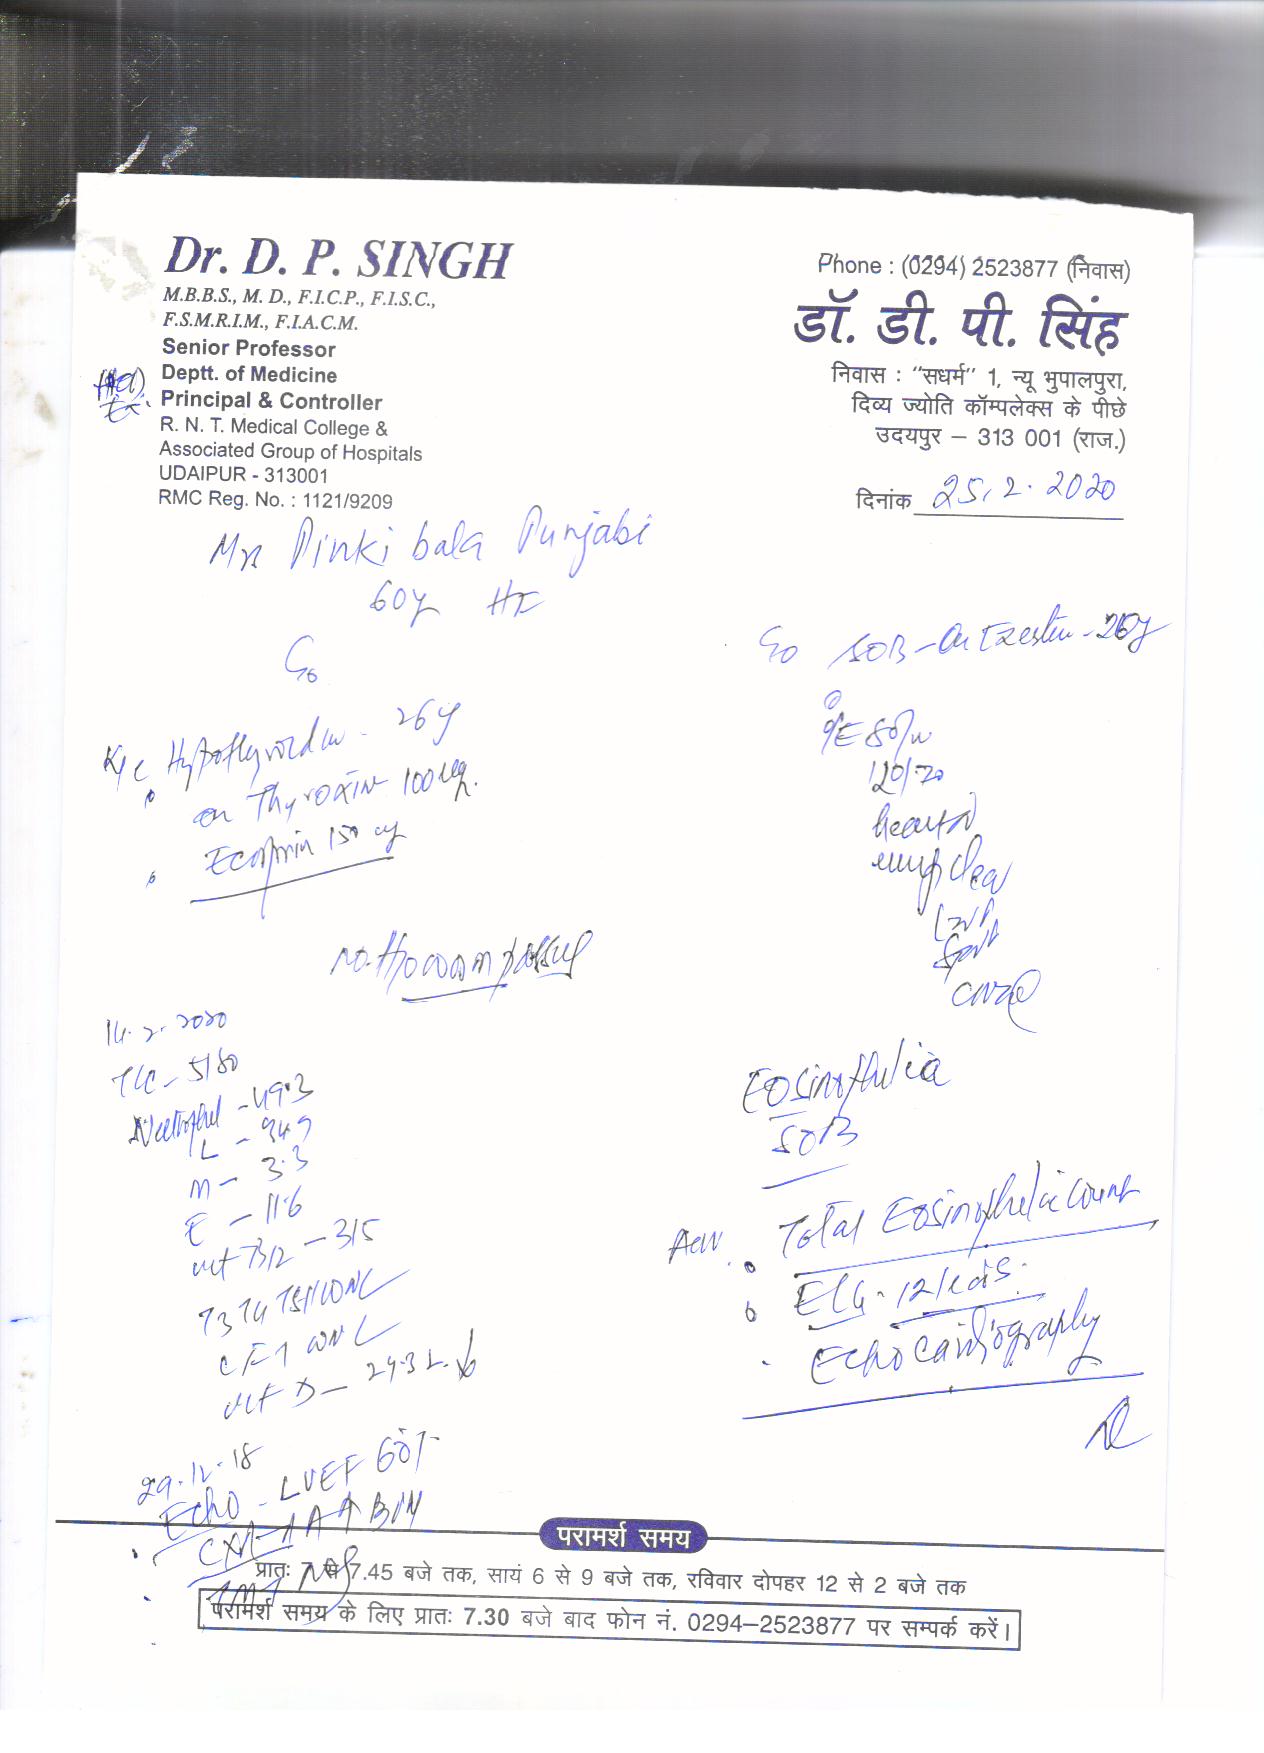 Dr. D. P. SINGH
M.B.B.S., M. D., F.I.C.P., F.I.S.C.,
F.S.M.R.I.M., F.I.A.C.M.
Senior Professor
Deptt. of Medicine
Principal & Controller
R. N. T. Medical College &
Associated Group of Hospitals
UDAIPUR - 313001
RMC Reg. No. : 1121/9209
Phone : (0294) 2523877 (निवास)
डॉ. डी. पी. सिंह
निवास : "सधर्म" 1, न्यू भुपालपुरा,
दिव्य ज्योति कॉम्पलेक्स के पीछे
उदयपुर – 313 001 (राज.)
दिनांक 25.2.2020
Mrs Pinki bala Punjabi
60y
C/o
K/c - 26y
on Thyroxin 100 mcg.
Ecosprin 150
14.2.2020
TLC - 5180
- 49.3
L - 34.9
M - 3.3
E - 11.6
vit B12 - 315
T3 T4 TSH WNL
WNL
vit D - 29.32 ↓
29.12.18
Echo - LVEF 60%
C/o SOB - on
O/E 80/m
120/70
clear
Eosinophilia
SOB
Adv. Total Eosinophilic Count
ECG - 12 leads.
Echo Cardiography
परामर्श समय
प्रातः 7 से 7.45 बजे तक, सायं 6 से 9 बजे तक, रविवार दोपहर 12 से 2 बजे तक
परामर्श समय के लिए प्रातः 7.30 बजे बाद फोन नं. 0294–2523877 पर सम्पर्क करें।